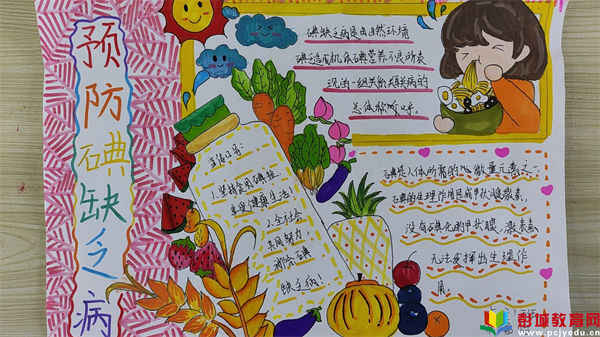 预防碘缺乏病
碘缺乏病是由自然环境
碘缺乏造成机体碘营养不良所表
现的一组关系疾病的
总体称呼。
宣传口号:
1.坚持食用碘盐,
享受健康生活!
2.全社会
共同努力,
消除碘
缺乏病!
碘是人体所需的微量元素之一,
碘的生理作用是成甲状腺激素,
没有碘化的甲状腺激素
无法发挥出生理作
用。
彭城教育网
www.pcjyedu.cn